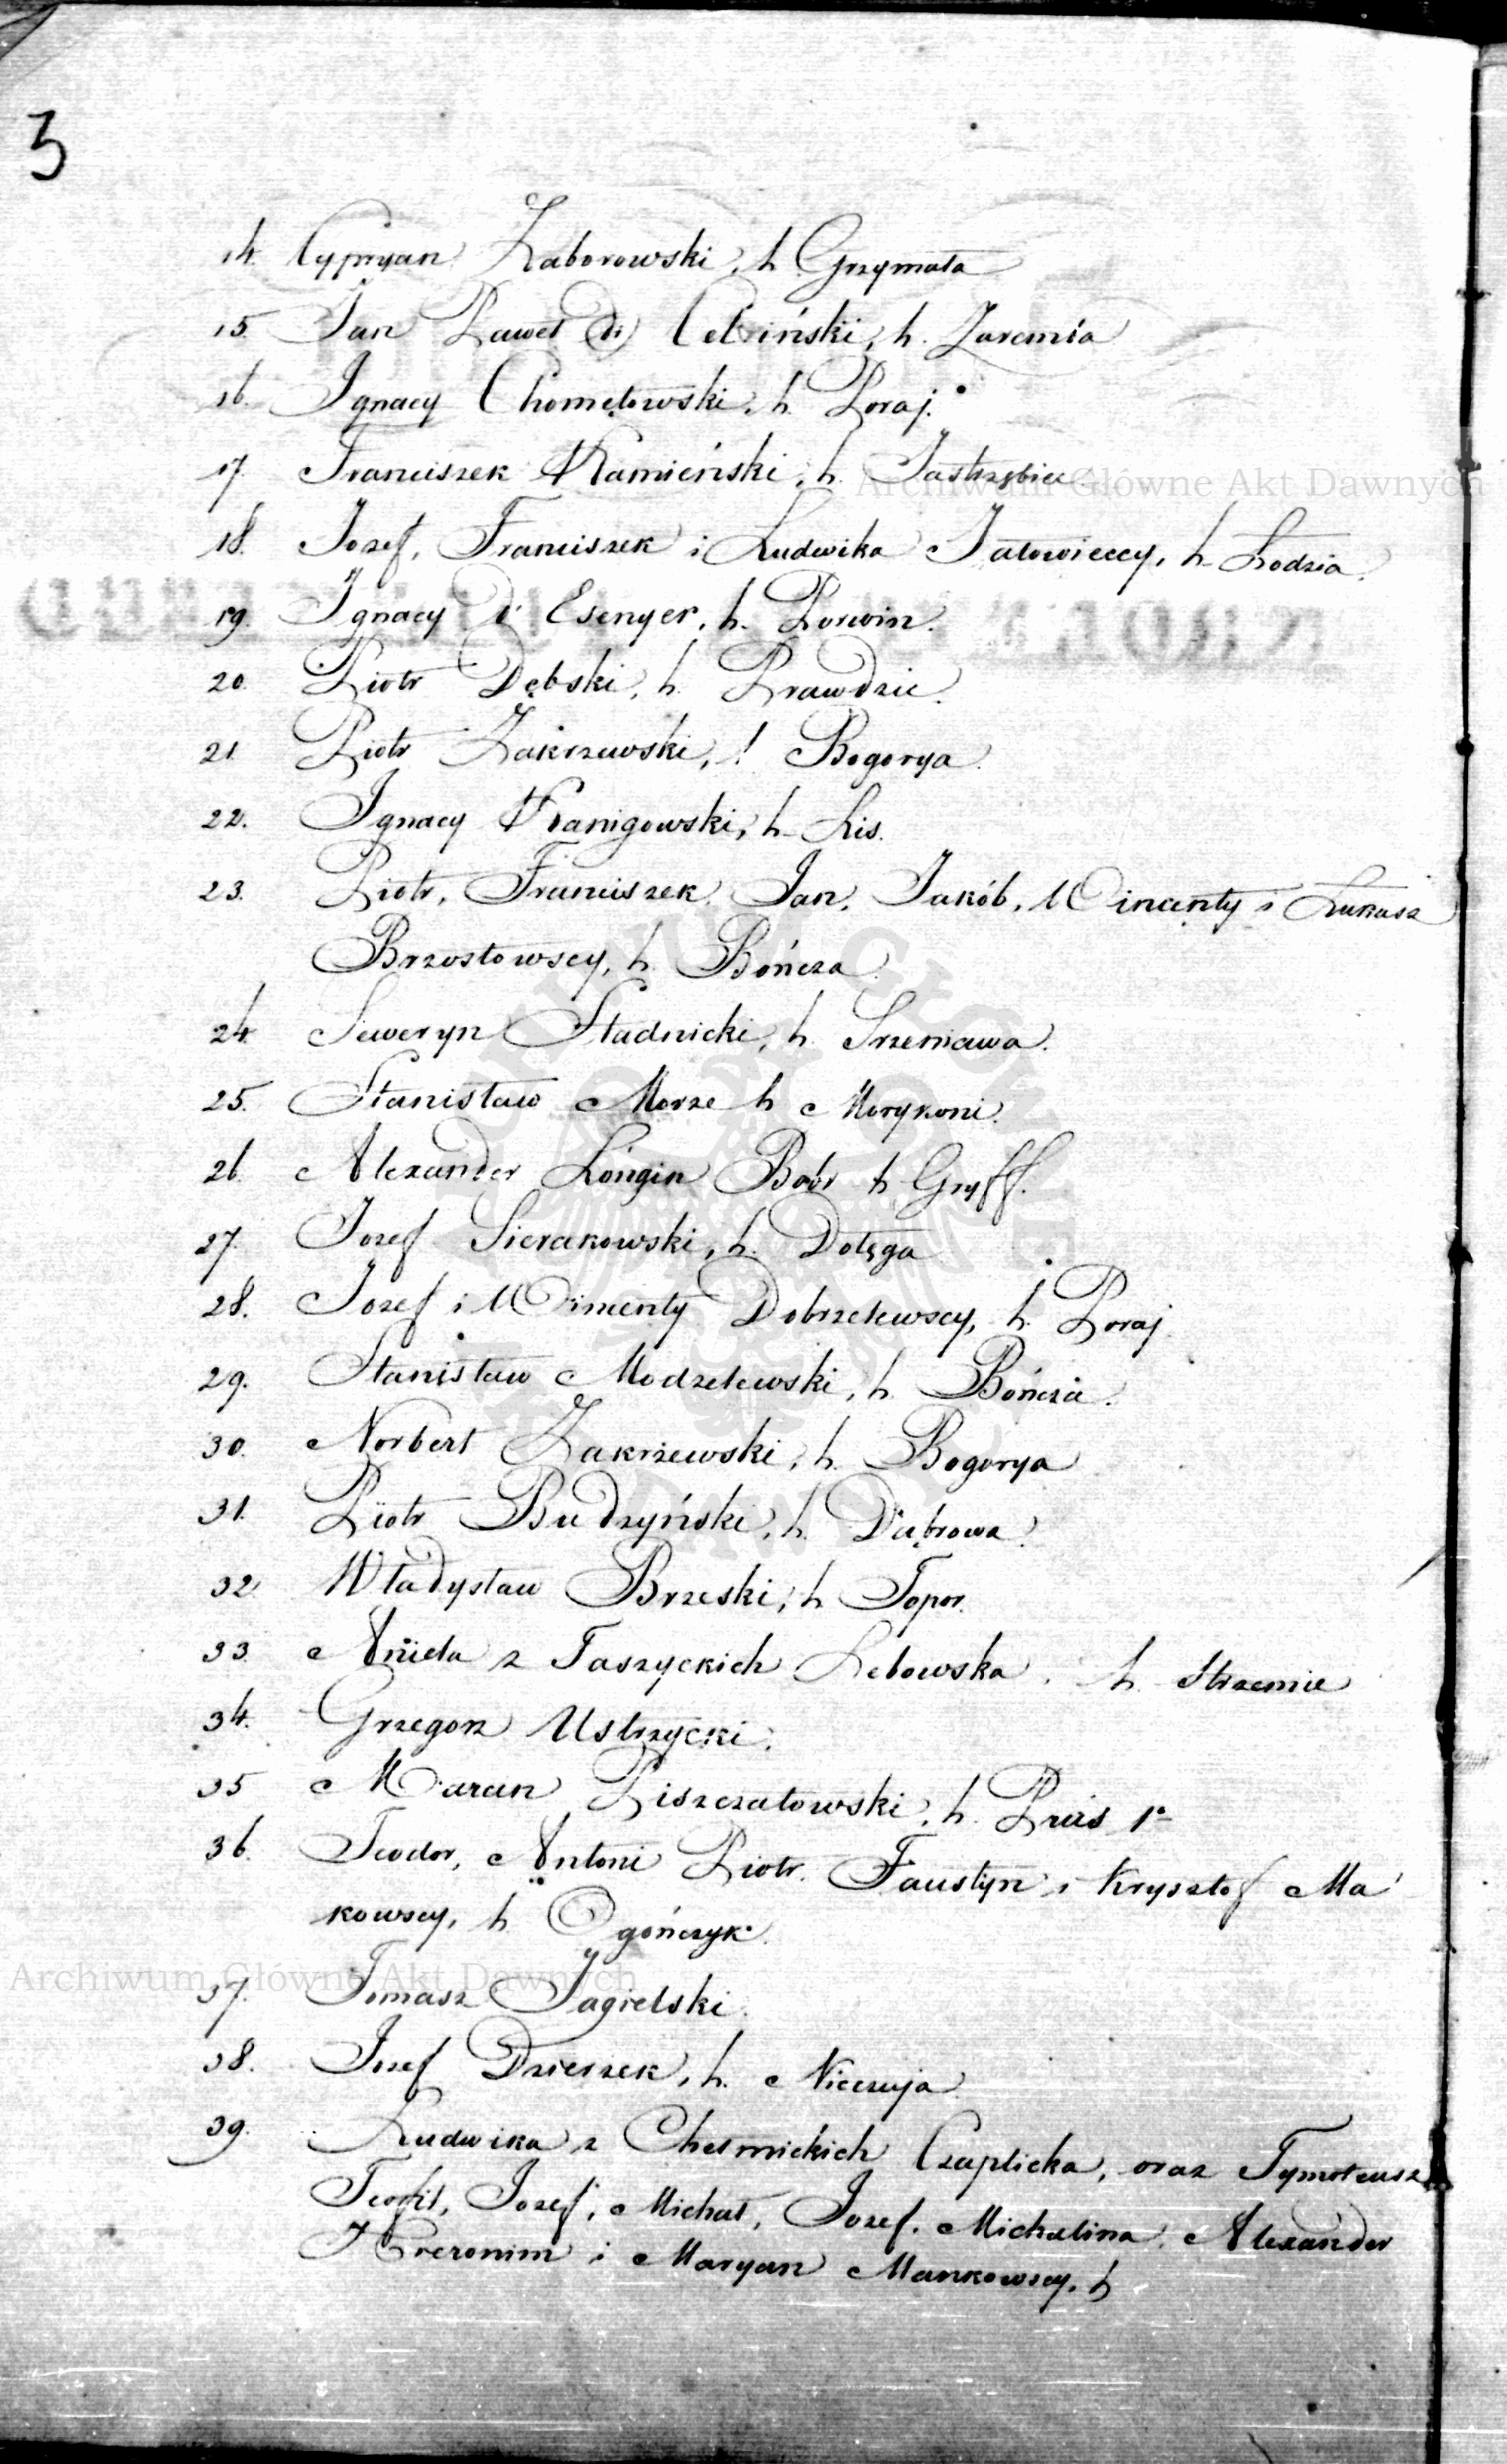 3
14. Cypryan Zaborowski, h. Grzymała
15. Jan Paweł Celiński, h. Zaremba
16. Ignacy Chomętowski, h. Poraj.
17. Franciszek Kamieński, h. Jastrzębiec
Archiwum Główne Akt Dawnych
18. Jozef, Franciszek i Ludwika Jałowieccy, h. Łodzia.
19. Ignacy Esenger, h. Korwin.
20. Piotr Dębski, h. Prawdzic.
21. Piotr Zakrzewski, h. Bogorya.
22. Ignacy Kanigowski, h. Lis.
23. Piotr, Franciszek, Jan, Jakób, Wincenty i Łukasz
Brzostowscy, h. Bończa.
24. Seweryn Stadnicki, h. Srzeniawa.
25. Stanisław Morze h. Morykoni.
26. Alexander Longin Bobr h. Gryff.
27. Jozef Sierakowski, h. Dołęga
28. Jozef i Wincenty Dobrzelewscy, h. Poraj.
29. Stanisław Modzelewski, h. Bończa.
30. Norbert Zakrzewski, h. Bogorya
31. Piotr Budzyński, h. Dąbrowa.
32. Władysław Brzeski, h. Topor.
33. Aniela z Taszyckich Łebowska, h. Strzemie
34. Grzegorz Ustrzycki.
35 Marcin Piszczatowski, h. Prus 1o
36. Teodor, Antoni Piotr, Faustyn i Krysztof Ma
kowscy, h. Ogończyk.
Archiwum Główne Akt Dawnych
37. Tomasz Jagielski.
38. Jozef Dzierzek, h. Nieczuja
39. Ludwika z Chełmickich Czaplicka, oraz Tymoteusz
Teofil, Jozef, Michał, Jozef, Michalina, Alexander
Hieronim i Maryan Mankowscy, h